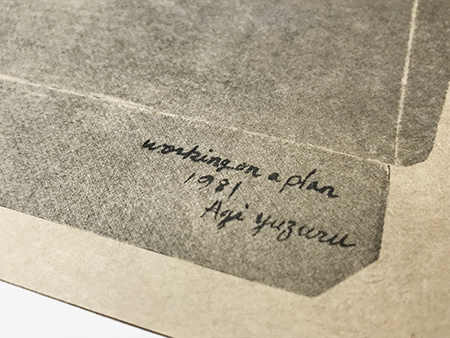 working on a plan
1981
Agi Yuzuru